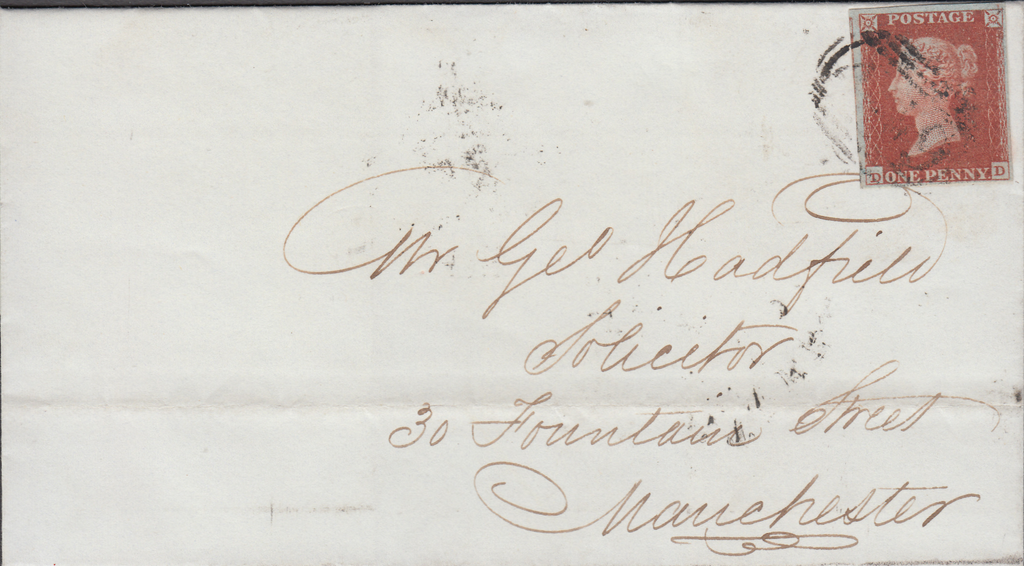 POSTAGE
D ONE PENNY D
Mr Geo Hadfield
Solicitor
30 Fountain Street
Manchester